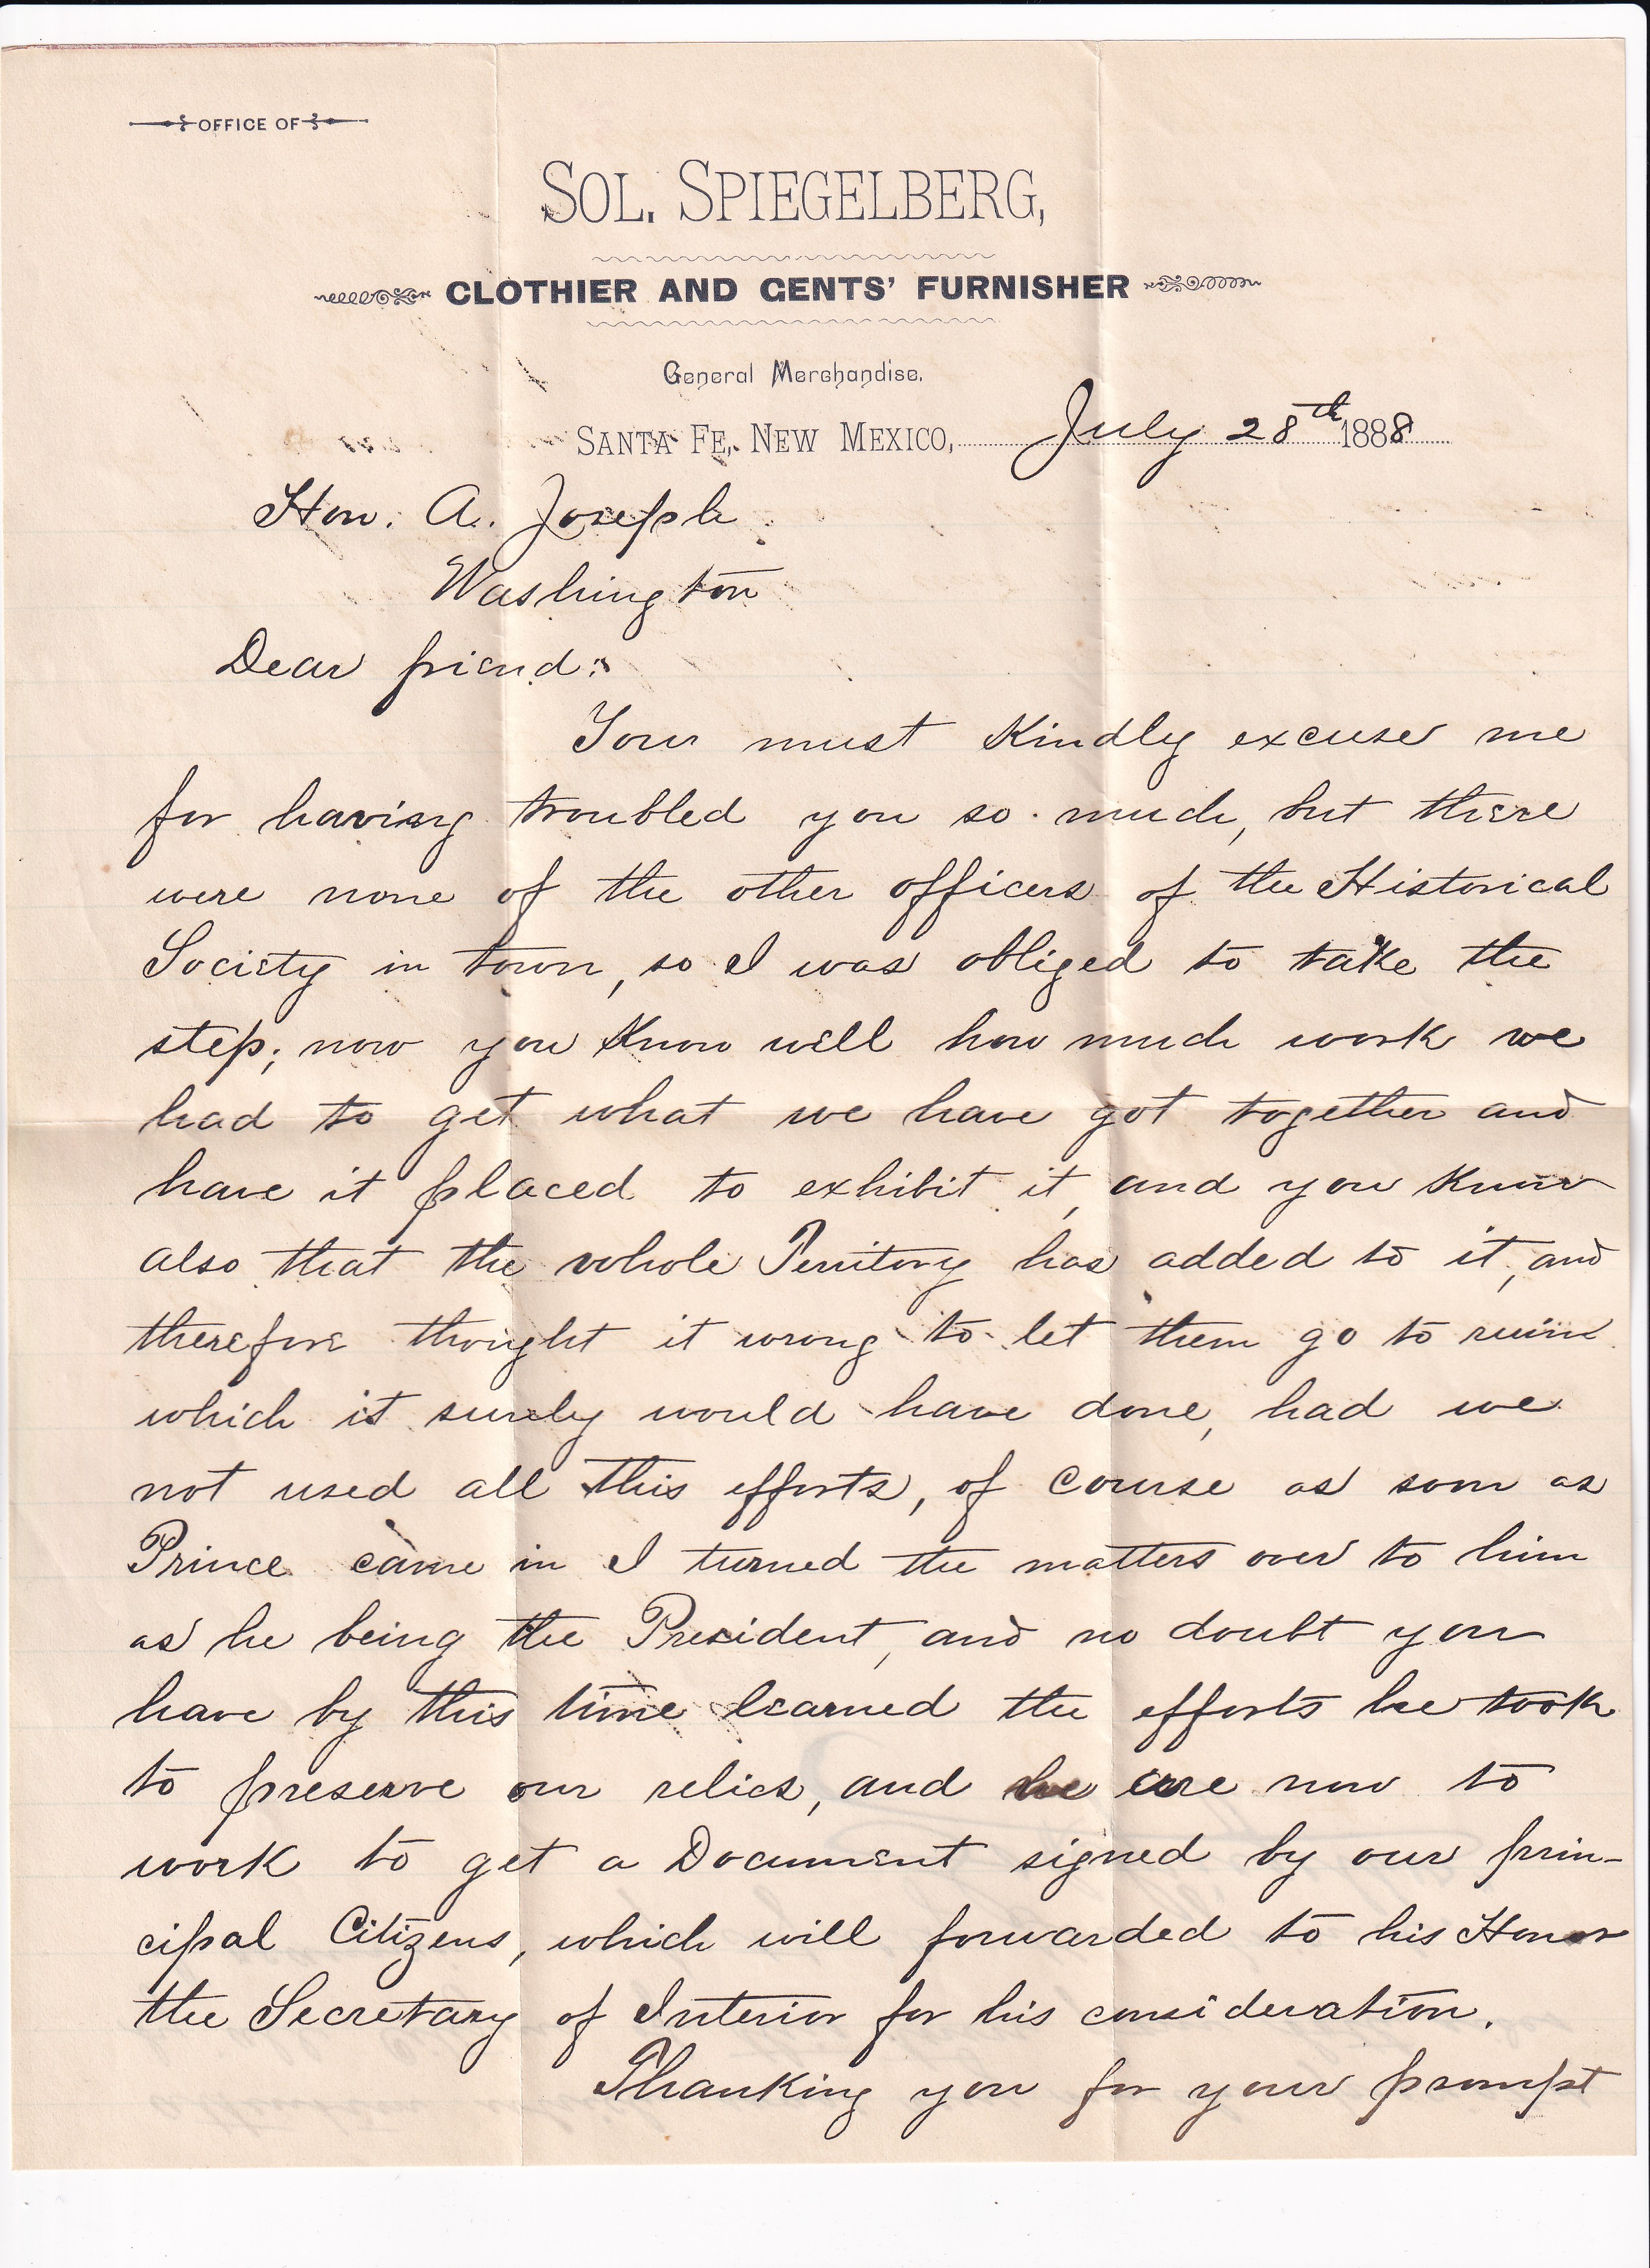 OFFICE OF
SOL. SPIEGELBERG,
CLOTHIER AND GENTS' FURNISHER
General Merchandise.
SANTA FE, NEW MEXICO, July 28th 1888
Hon. A. Joseph
Washington
Dear friend:
You must Kindly excuse me
for having troubled you so much, but there
were none of the other officers of the Historical
Society in town, so I was obliged to take the
step; now you Know well how much work we
had to get what we have got together and
have it placed to exhibit it, and you Know
also that the whole Territory has added to it, and
therefore thought it wrong to let them go to ruin
which it surely would have done, had we
not used all this efforts, of course as soon as
Prince came in I turned the matters over to him
as he being the President, and no doubt you
have by this time learned the efforts he took
to preserve our relics, and we are now to
work to get a Document signed by our prin-
cipal Citizens, which will forwarded to his Honor
the Secretary of Interior for his consideration.
Thanking you for your prompt